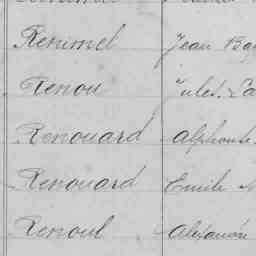 Renimel Jean Bap
Renou Jules
Renouard Alphonse
Renouard Emile
Renoul